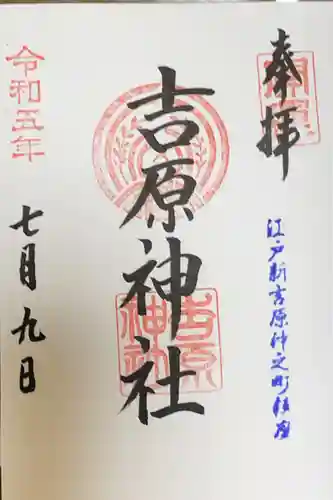 奉拝
江戸新吉原仲之町鎮座
吉原神社
吉原神社
令和五年
七月九日